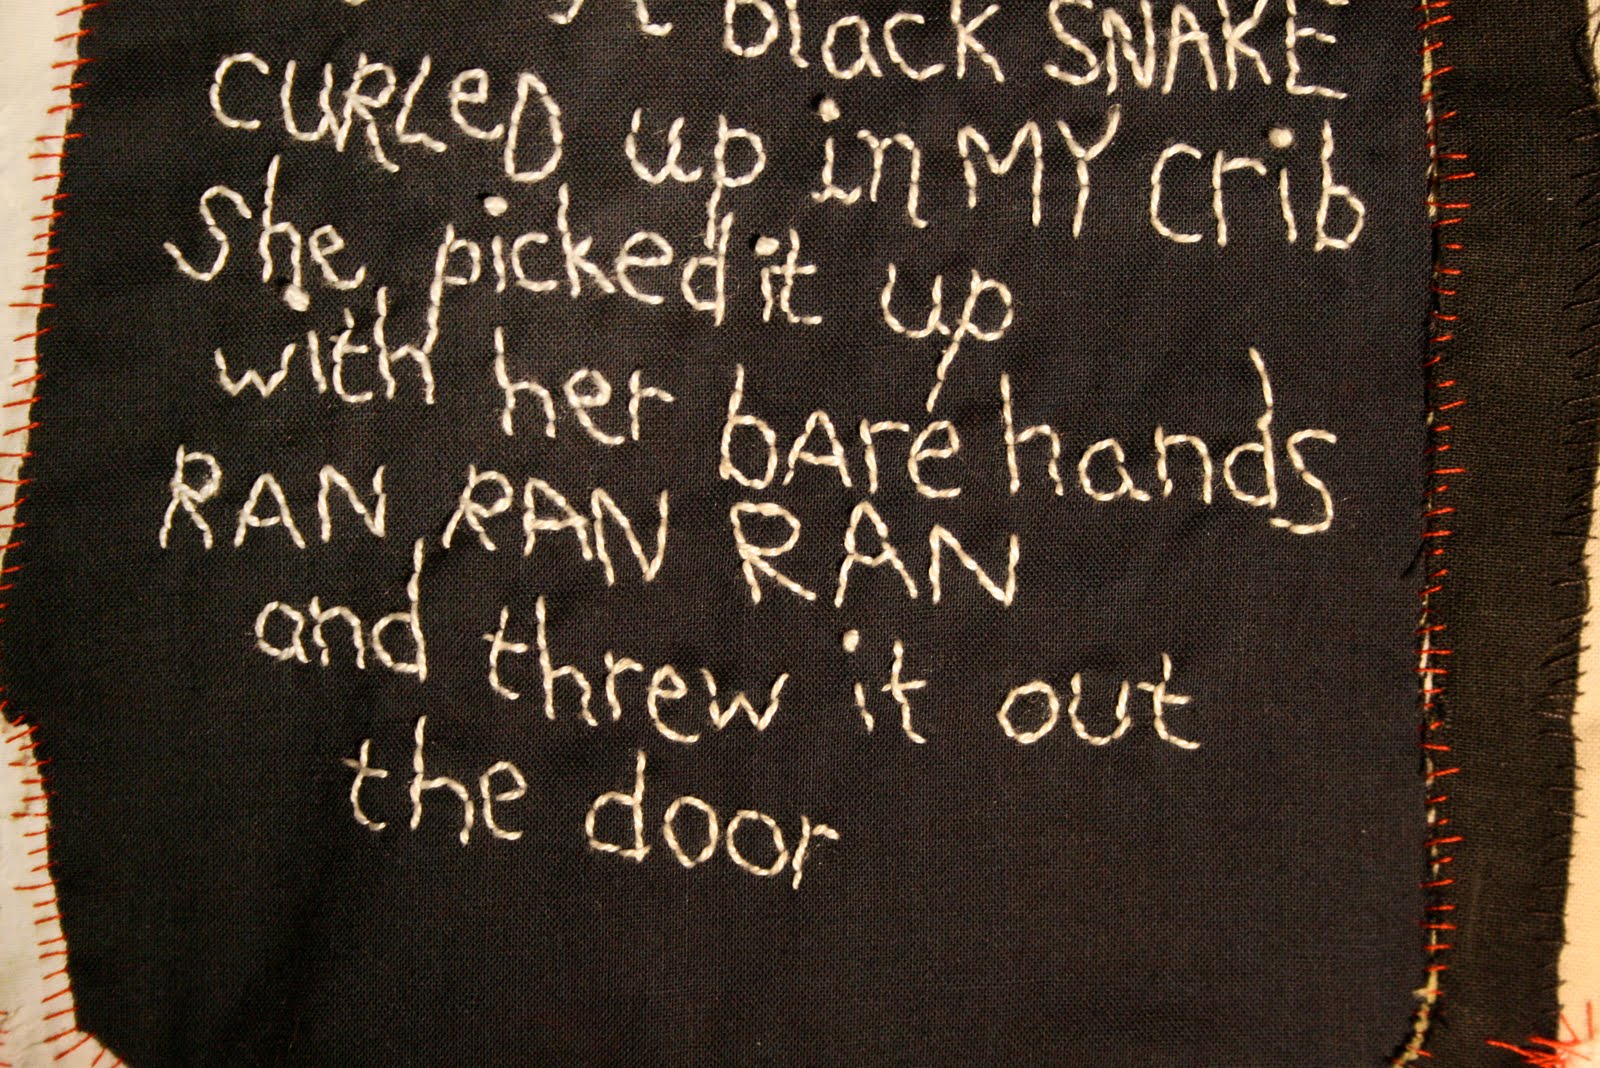 black SNAKE
CURLeD up in MY crib
She picked it up
with her bAre hands
RAN RAN RAN
and threw it out
the door